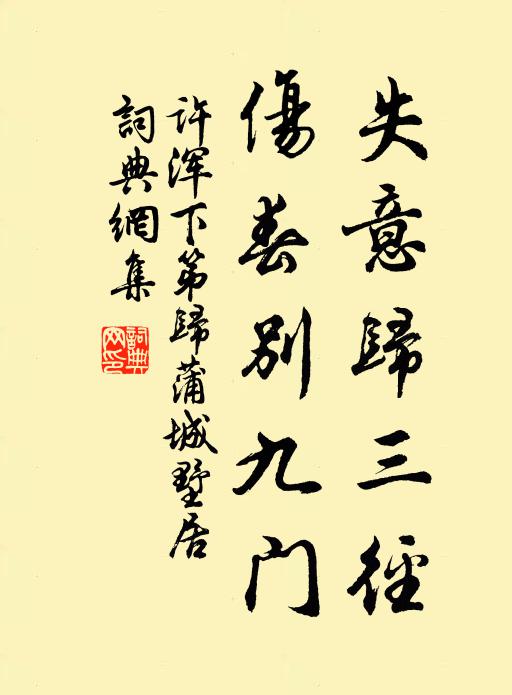 失意歸三徑
傷春別九门
许浑下第歸蒲城墅居
詞典網集
詞典网印